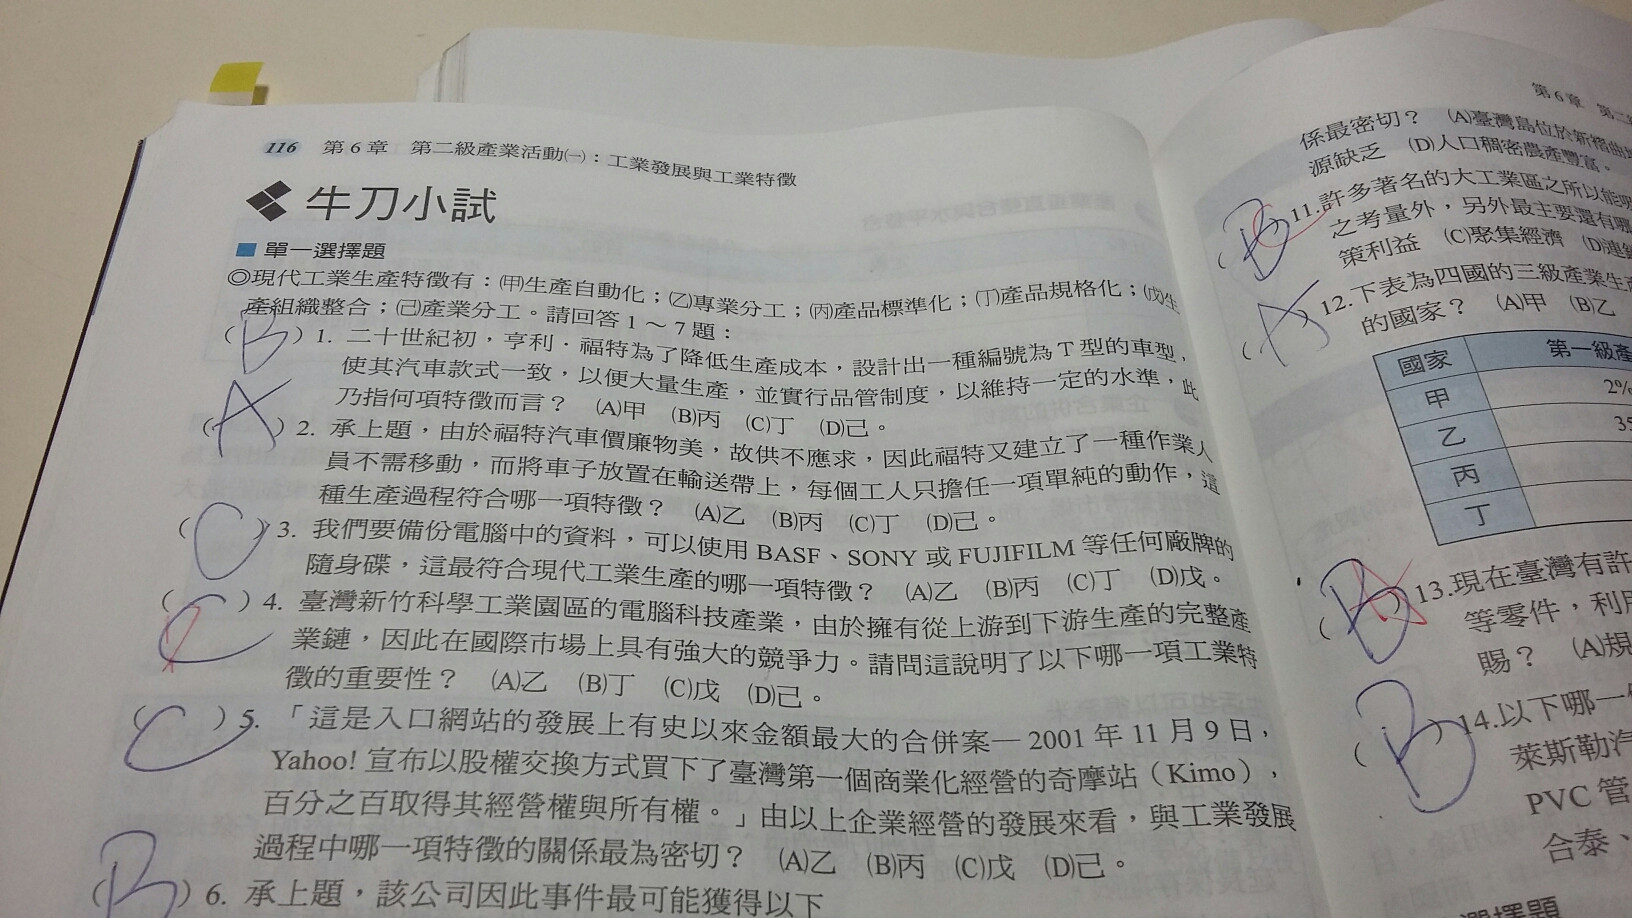 116 第6章 第二級產業活動㈠：工業發展與工業特徵
牛刀小試
■ 單一選擇題
◎現代工業生產特徵有：㈙生產自動化；㈚專業分工；㈛產品標準化；㈜產品規格化；(戊)生
產組織整合；(己)產業分工。請回答1～7題：
(B) 1. 二十世紀初，亨利．福特為了降低生產成本，設計出一種編號為T型的車型，
使其汽車款式一致，以便大量生產，並實行品管制度，以維持一定的水準，此
乃指何項特徵而言？ (A)甲 (B)丙 (C)丁 (D)己。
(A) 2. 承上題，由於福特汽車價廉物美，故供不應求，因此福特又建立了一種作業人
員不需移動，而將車子放置在輸送帶上，每個工人只擔任一項單純的動作，這
種生產過程符合哪一項特徵？ (A)乙 (B)丙 (C)丁 (D)己。
(C) 3. 我們要備份電腦中的資料，可以使用BASF、SONY或FUJIFILM等任何廠牌的
隨身碟，這最符合現代工業生產的哪一項特徵？ (A)乙 (B)丙 (C)丁 (D)戊。
(C) 4. 臺灣新竹科學工業園區的電腦科技產業，由於擁有從上游到下游生產的完整產
業鏈，因此在國際市場上具有強大的競爭力。請問這說明了以下哪一項工業特
徵的重要性？ (A)乙 (B)丁 (C)戊 (D)己。
(C) 5. 「這是入口網站的發展上有史以來金額最大的合併案─2001年11月9日，
Yahoo!宣布以股權交換方式買下了臺灣第一個商業化經營的奇摩站（Kimo），
百分之百取得其經營權與所有權。」由以上企業經營的發展來看，與工業發展
過程中哪一項特徵的關係最為密切？ (A)乙 (B)丙 (C)戊 (D)己。
(B) 6. 承上題，該公司因此事件最可能獲得以下
第6章 第二
係最密切？ (A)臺灣島位於新褶曲
源缺乏 (D)人口稠密農產豐富。
(B) 11.許多著名的大工業區之所以能
之考量外，另外最主要還有哪
策利益 (C)聚集經濟 (D)連
(A) 12.下表為四國的三級產業生
的國家？ (A)甲 (B)乙
國家 第一級產
甲 2%
乙 35
丙
丁
(B) 13.現在臺灣有許
等零件，利用
賜？ (A)規
(B) 14.以下哪一
萊斯勒汽
PVC管
合泰、
選擇題